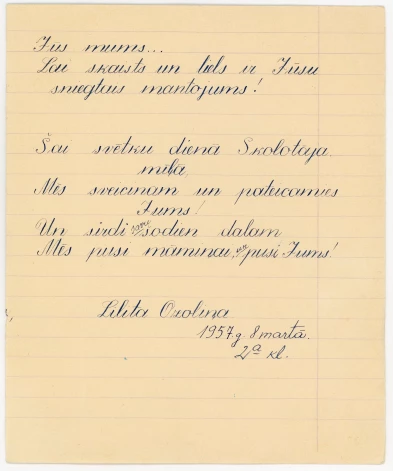 Jūs mums...
Lai skaists un liels ir Jūsu
sniegtais mantojums!
Šai svētku dienā Skolotāja
mīļā,
Mēs sveicinām un pateicamies
Jums!
Un sirdi savu šodien dalam
Mēs pusi māmiņai, un pusi Jums!
Lilita Ozoliņa
1957.g. 8 martā.
2ª kl.